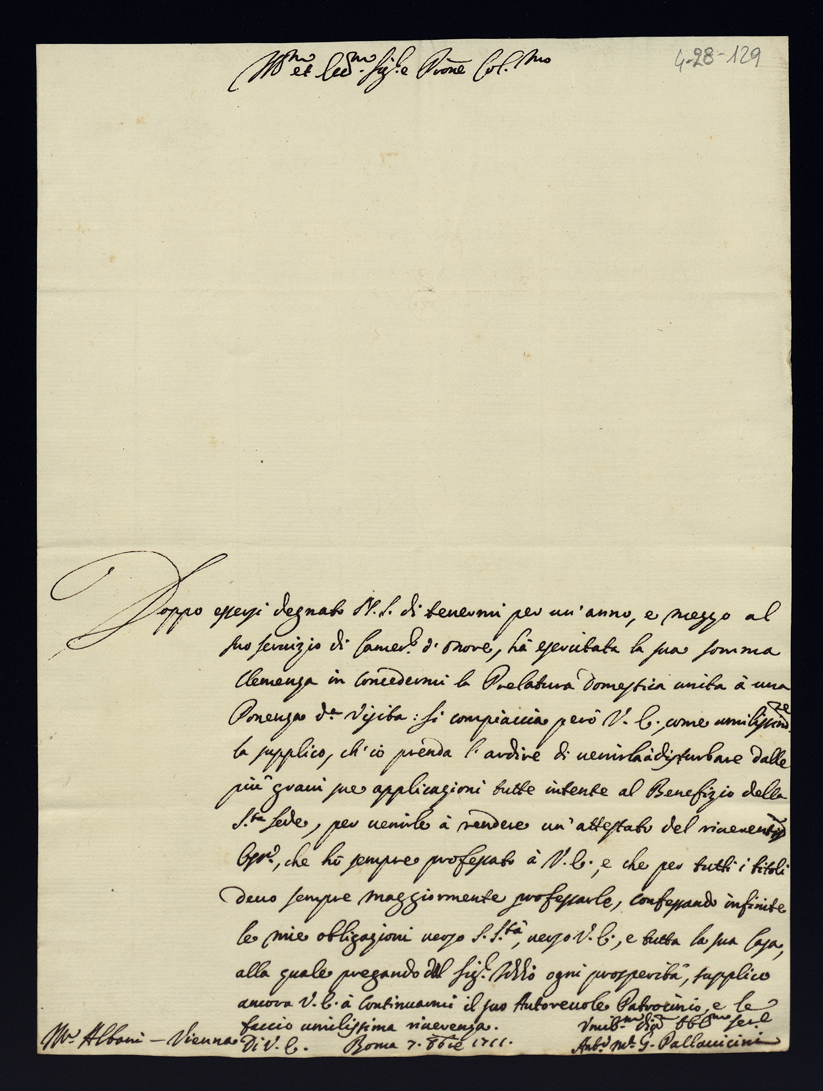 4-28-129
Ill.mo et Ecc.mo Sig.re Prone Col.mo
Doppo essersi degnato N. S. di tenermi per un' anno, e mezzo al
suo servizio di Camer.e d' onore, hà esercitata la sua somma
Clemenza in concedermi la Prelatura Domestica unita à una
Ponenza d.a Visita: si compiaccia però V. E., come umilissim.te
la supplico, ch' io prenda l' ardire di venirla à disturbare dalle
più gravi sue applicazioni tutte intente al Benefizio della
S.ta Sede, per venirle à rendere un' attestato del riverentis.o
che hò sempre professato à V. E., e che per tutti i titoli
devo sempre maggiormente professarle, confessando infinite
le mie obligazioni verso S. S.tà, verso V. E., e tutta la sua Casa,
alla quale pregando dal Sig.r Iddio ogni prosperità, supplico
ancora V. E. à continuarmi il suo Autorevole Patrocinio, e le
faccio umilissima riverenza.
Di V. E. Roma 7. 1711.
Umil.mo Obb.mo Ser.e
Ant.o M.a G. Pallavicini
M.r Albani - Vienna